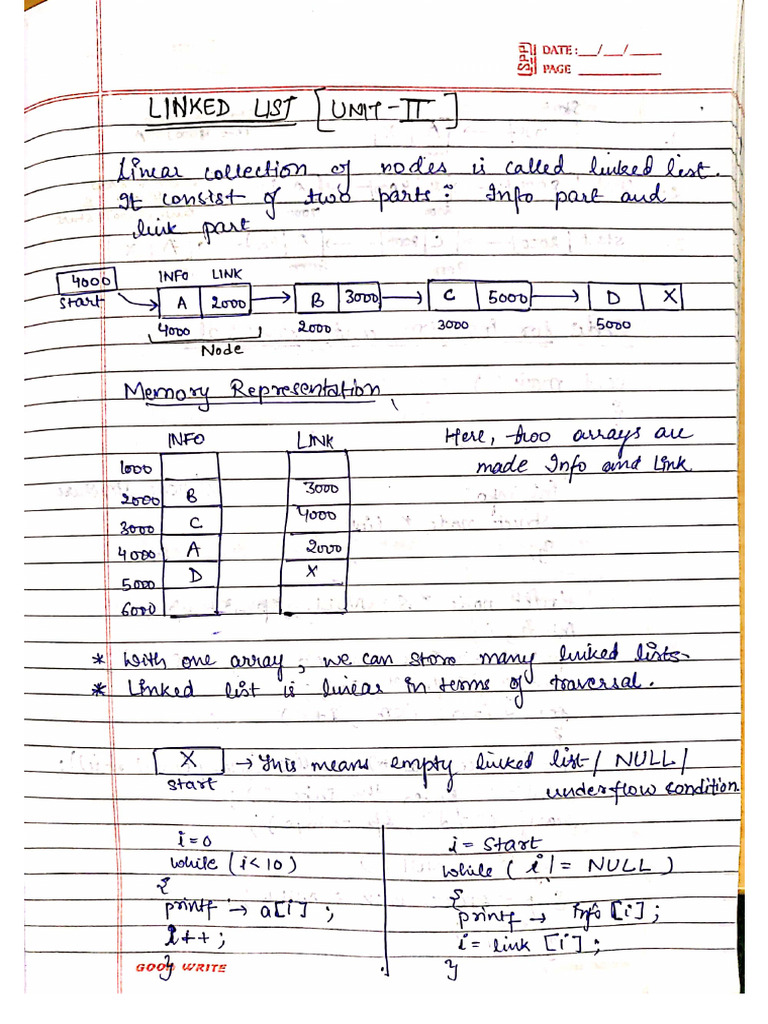 SPP DATE: __/__/____
PAGE ________
LINKED LIST [UNIT-II]
Linear collection of nodes is called linked list.
It consist of two parts: Info part and
link part
4000 INFO LINK
Start A 2000 B 3000 C 5000 D X
4000 2000 3000 5000
Node
Memory Representation
INFO LINK Here, two arrays are
made Info and Link
1000
2000 B 3000
3000 C 4000
4000 A 2000
5000 D X
6000
* With one array, we can store many linked lists.
* Linked list is linear in terms of traversal.
X → This means empty linked list / NULL /
Start underflow condition.
i=0 i = Start
while (i<10) while ( i != NULL )
{ {
printf → a[i] ; printf → Info [i] ;
i++ ; i = link [i] ;
} }
GOOD WRITE